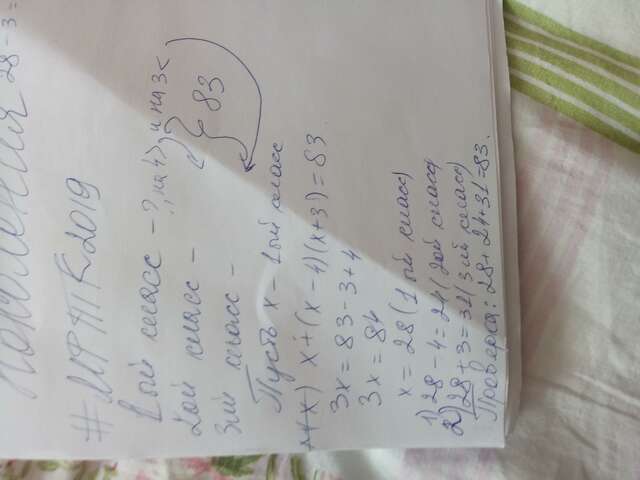 28-3=
#МРТК2019
1ый класс - ?, на 4> и на 3<
2ой класс - } 83
3ий класс -
Пусть x - 1ый класс
x+(x-4)(x+3)=83
3x=83-3+4
3x=84
x=28(1ый класс)
1) 28-4=24(2ой класс)
2) 28+3=31(3ий класс)
Проверка: 28+24+31=83.